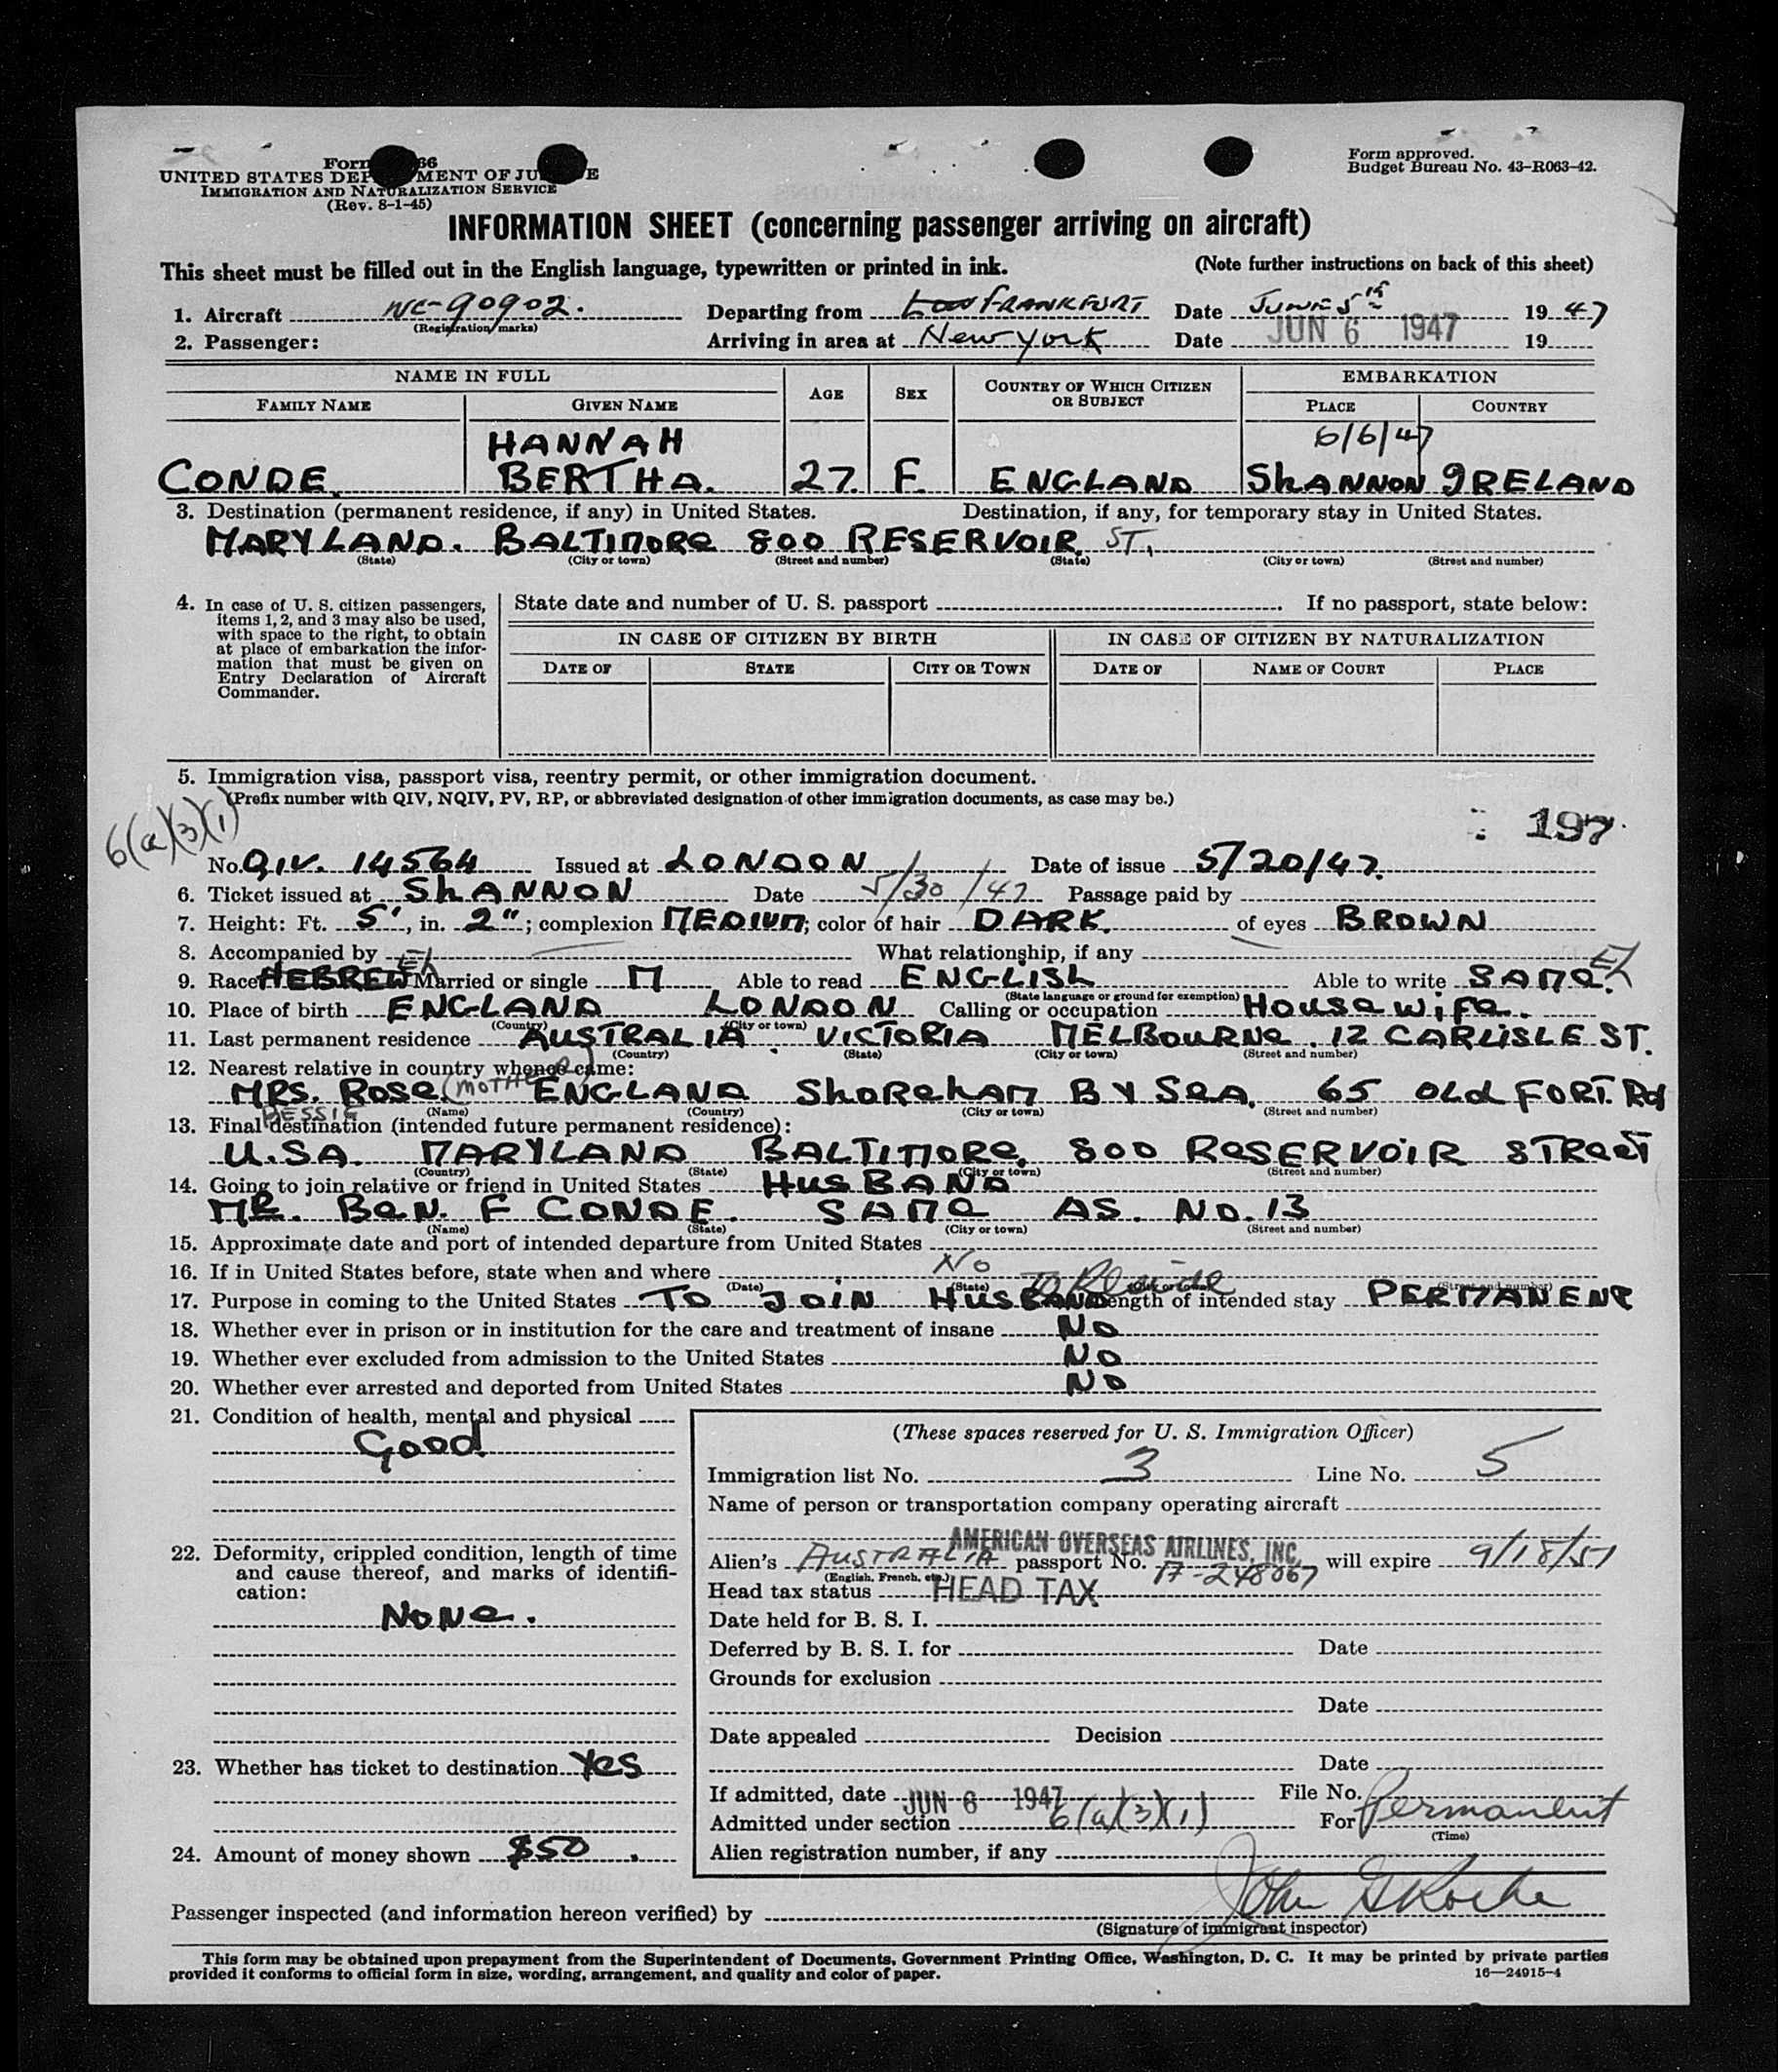 Form 66
UNITED STATES DEP MENT OF JU E
IMMIGRATION AND NATURALIZATION SERVICE
(Rev. 8-1-45)
Form approved.
Budget Bureau No. 43-R063-42.
INFORMATION SHEET (concerning passenger arriving on aircraft)
This sheet must be filled out in the English language, typewritten or printed in ink. (Note further instructions on back of this sheet)
1. Aircraft NC-90902. Departing from FRANKFURT Date JUNE 5th 1947
(Registration marks)
2. Passenger: Arriving in area at New York Date JUN 6 1947 19
NAME IN FULL AGE SEX COUNTRY OF WHICH CITIZEN OR SUBJECT EMBARKATION
FAMILY NAME GIVEN NAME PLACE COUNTRY
HANNAH 6/6/47
CONDE. BERTHA. 27. F. ENGLAND SHANNON IRELAND
3. Destination (permanent residence, if any) in United States. Destination, if any, for temporary stay in United States.
MARYLAND. BALTIMORe 800 RESERVOIR ST.
(State) (City or town) (Street and number) (State) (City or town) (Street and number)
4. In case of U. S. citizen passengers, items 1, 2, and 3 may also be used, with space to the right, to obtain at place of embarkation the information that must be given on Entry Declaration of Aircraft Commander.
State date and number of U. S. passport . If no passport, state below:
IN CASE OF CITIZEN BY BIRTH IN CASE OF CITIZEN BY NATURALIZATION
DATE OF STATE CITY OR TOWN DATE OF NAME OF COURT PLACE
5. Immigration visa, passport visa, reentry permit, or other immigration document.
(Prefix number with QIV, NQIV, PV, RP, or abbreviated designation of other immigration documents, as case may be.)
6(a)(3)(1)
197
No. QIV. 14564 Issued at LONDON Date of issue 5/20/47.
6. Ticket issued at SHANNON Date 5/30/47 Passage paid by
7. Height: Ft. 5', in. 2"; complexion MEDIUM; color of hair DARK. of eyes BROWN
8. Accompanied by What relationship, if any
9. Race HEBREW Married or single M Able to read ENGLISH Able to write SAMe.
(State language or ground for exemption)
10. Place of birth ENGLAND LONDON Calling or occupation HOUSewife.
(Country) (City or town)
11. Last permanent residence AUSTRALIA. VICTORIA MELBOURNe. 12 CARLISLE ST.
(Country) (State) (City or town) (Street and number)
12. Nearest relative in country whence came:
MRS. ROSe (MOTHER) ENGLAND SHOReHAM BY SeA. 65 OLd FORT. Rd
BESSIE
(Name) (Country) (City or town) (Street and number)
13. Final destination (intended future permanent residence):
U.S.A. MARYLAND BALTIMORe. 800 ReSERVOIR STReeT
(Country) (State) (City or town) (Street and number)
14. Going to join relative or friend in United States HUSBAND
MR. BeN. F CONDE. SAMe AS. NO. 13
(Name) (State) (City or town) (Street and number)
15. Approximate date and port of intended departure from United States
16. If in United States before, state when and where No
(Date) (State) (City or town) (Street and number)
To Reside
17. Purpose in coming to the United States TO JOIN HUSBAND Length of intended stay PERMANENT
18. Whether ever in prison or in institution for the care and treatment of insane NO
19. Whether ever excluded from admission to the United States NO
20. Whether ever arrested and deported from United States NO
21. Condition of health, mental and physical
Good
22. Deformity, crippled condition, length of time and cause thereof, and marks of identification:
NONe.
23. Whether has ticket to destination Yes
24. Amount of money shown $50.
(These spaces reserved for U. S. Immigration Officer)
Immigration list No. 3 Line No. 5
Name of person or transportation company operating aircraft
AMERICAN OVERSEAS AIRLINES, INC.
Alien's AUSTRALIA passport No. A-248067 will expire 9/18/51
(English, French, etc.)
Head tax status HEAD TAX
Date held for B. S. I.
Deferred by B. S. I. for Date
Grounds for exclusion
Date
Date appealed Decision
Date
If admitted, date JUN 6 1947 File No.
Admitted under section 6(a)(3)(1) For Permanent
(Time)
Alien registration number, if any
Passenger inspected (and information hereon verified) by John G Roche
(Signature of immigrant inspector)
This form may be obtained upon prepayment from the Superintendent of Documents, Government Printing Office, Washington, D. C. It may be printed by private parties
provided it conforms to official form in size, wording, arrangement, and quality and color of paper. 16—24915-4